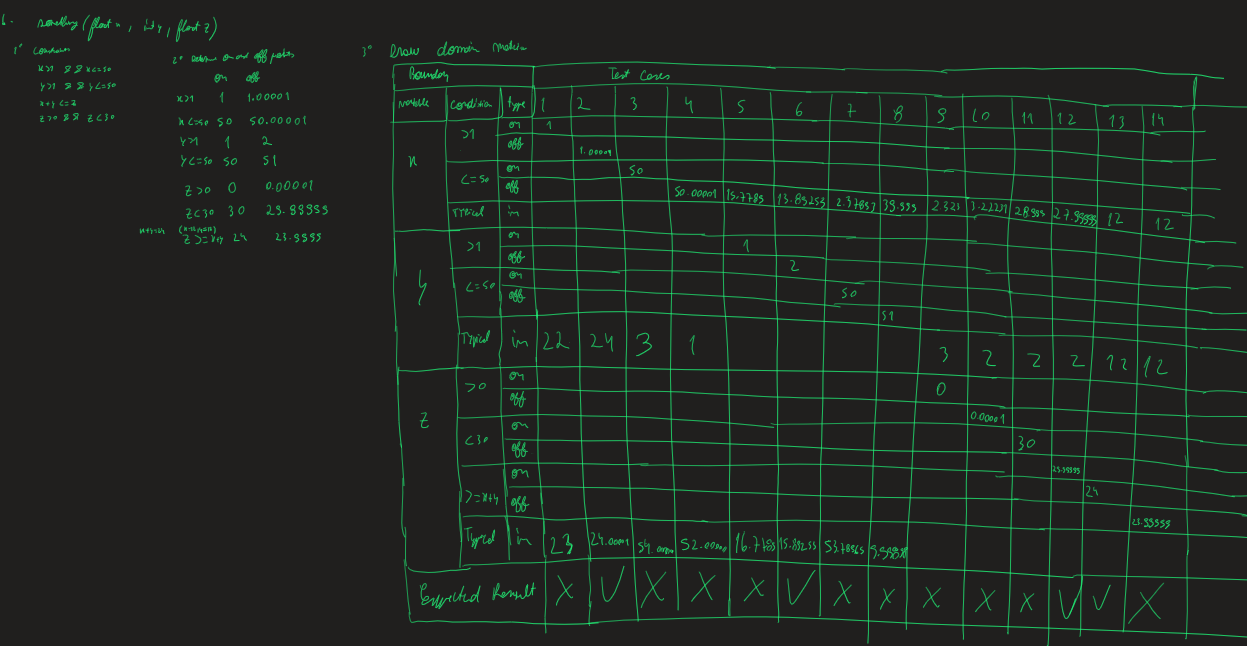 6. something (float x, int y, float z)
1° Constraints
x>1 && x<=50
y>1 && y<=50
x+y <= z
z>0 && z<30
2° Determine on and off points
on off
x>1 1 1.00001
x<=50 50 50.00001
y>1 1 2
y<=50 50 51
z>0 0 0.00001
z<30 30 29.99999
x+y=24 (x=12,y=12)
z>=x+y 24 23.9999
3° Draw domain matrix
Boundary Test Cases
variable Condition type 1 2 3 4 5 6 7 8 9 10 11 12 13 14
x >1 on 1
off 1.00001
<=50 on 50
off 50.00001
Typical in 15.7785 13.89253 2.37897 39.999 2.323 3.22231 28.999 27.99999 12 12
y >1 on 1
off 2
<=50 on 50
off 51
Typical in 22 24 3 1 3 2 2 2 12 12
z >0 on 0
off 0.00001
<30 on 30
off 29.99999
>=x+y on 24
off 23.99999
Typical in 23 24.0001 54.0000 52.00000 16.7785 15.89255 53.78965
Expected Result X V X X X V X X X X X V V X